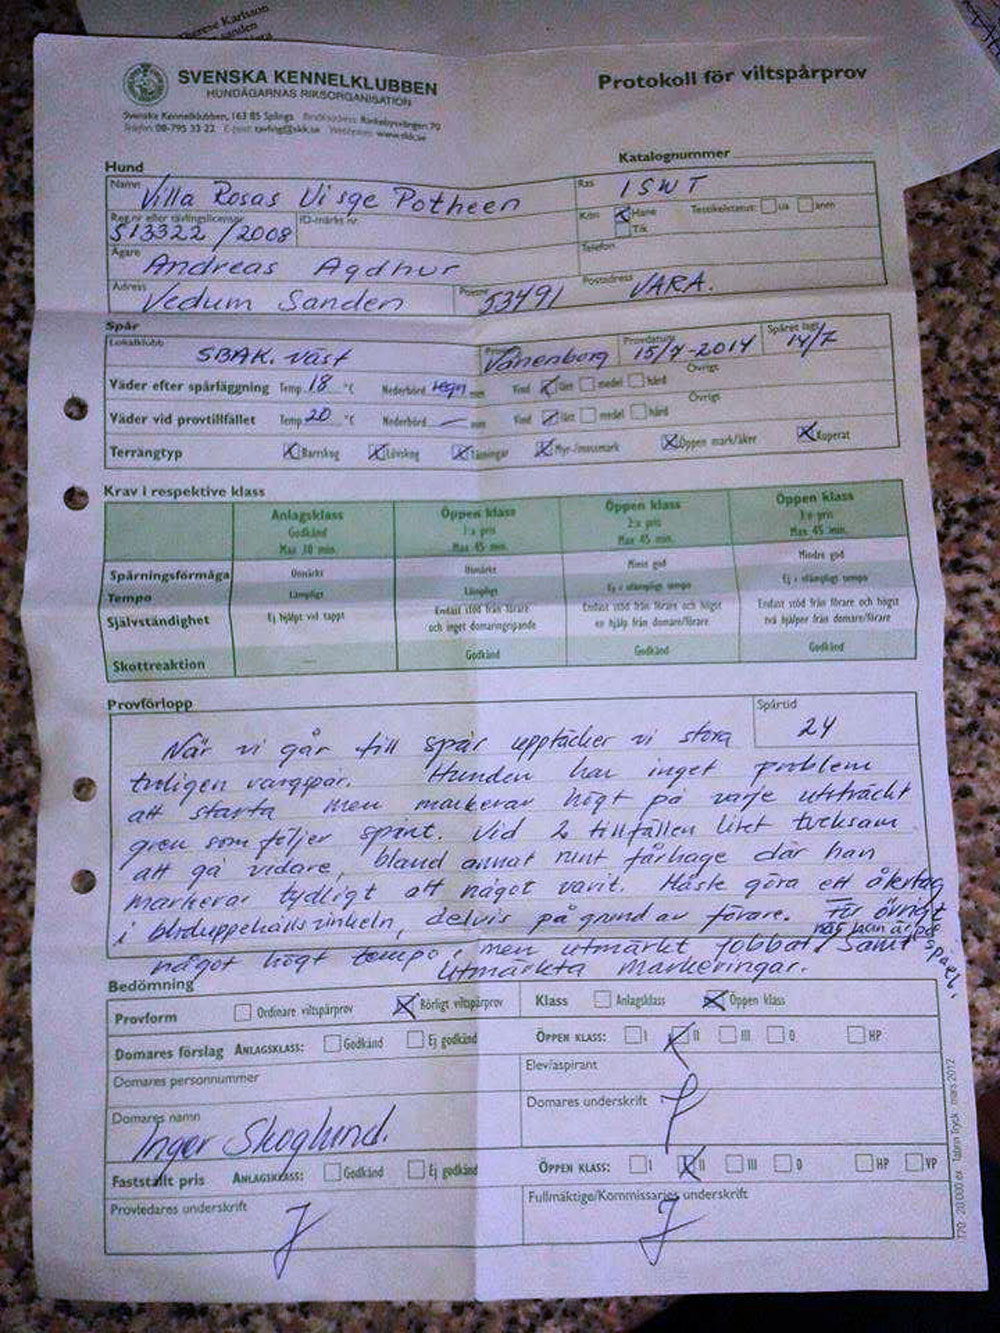 Therese Karlsson
SVENSKA KENNELKLUBBEN
HUNDÄGARNAS RIKSORGANISATION
Svenska Kennelklubben, 163 85 Spånga Besöksadress Rinkebysvängen 70
Telefon 08-795 33 22 E-post: tavling@skk.se Webbplats: www.skk.se
Protokoll för viltspårprov
Hund
Katalognummer
Namn Villa Rosas Uisge Potheen
Ras ISWT
Reg.nr eller tävlingslicensnr S13322/2008
ID-märkn.nr
Kön Hane Tik
Testikelstatus: ua anm
Ägare Andreas Agdhur
Telefon
Adress Vedum Sanden
Postnr 53491
Postadress VARA.
Spår
Lokalklubb SBAK. väst
Vänersborg
Provdatum 15/7-2014
Spåret lagt 14/7
Väder efter spårläggning Temp 18 °C Nederbörd regn mm Vind lätt medel hård Övrigt
Väder vid provtillfället Temp 20 °C Nederbörd — mm Vind lätt medel hård Övrigt
Terrängtyp Barrskog Lövskog Täkningar Myr-/mossmark Öppen mark/åker Kuperat
Krav i respektive klass
Anlagsklass Godkänd Max 30 min.
Öppen klass 1:a pris Max 45 min.
Öppen klass 2:a pris Max 45 min.
Öppen klass 3:e pris Max 45 min.
Spårningsförmåga Utmärkt Utmärkt Minst god Mindre god
Tempo Lämpligt Lämpligt Ej i olämpligt tempo Ej i olämpligt tempo
Självständighet Ej hjälpt vid tappt Endast stöd från förare och inget domaringripande Endast stöd från förare och högst en hjälp från domare/förare Endast stöd från förare och högst två hjälper från domare/förare
Skottreaktion — Godkänd Godkänd Godkänd
Provförlopp
Spårtid 24
När vi går till spår upptäcker vi stora
troligen vargspår. Hunden har inget problem
att starta men markerar högt på varje utsträckt
gren som följer spåret. Vid 2 tillfällen litet tveksam
att gå vidare, bland annat runt fårhage där han
markerar tydligt att något varit. Måste göra ett återtag
i bloduppehållsvinkeln, delvis på grund av förare. För övrigt
något högt tempo, men utmärkt jobbat när han är på spåret. Samt
utmärkta markeringar.
Bedömning
Provform Ordinare viltspårprov Rörligt viltspårprov Klass Anlagsklass Öppen klass
Domares förslag ANLAGSKLASS: Godkänd Ej godkänd ÖPPEN KLASS: I II III 0 HP
Domares personnummer
Elev/aspirant
Domares namn Inger Skoglund.
Domares underskrift
Fastställt pris ANLAGSKLASS: Godkänd Ej godkänd ÖPPEN KLASS: I II III 0 HP VP
Provledares underskrift
Fullmäktige/Kommissaries underskrift
170 · 20.000 ex · Tabrin Tryck · mars 2012